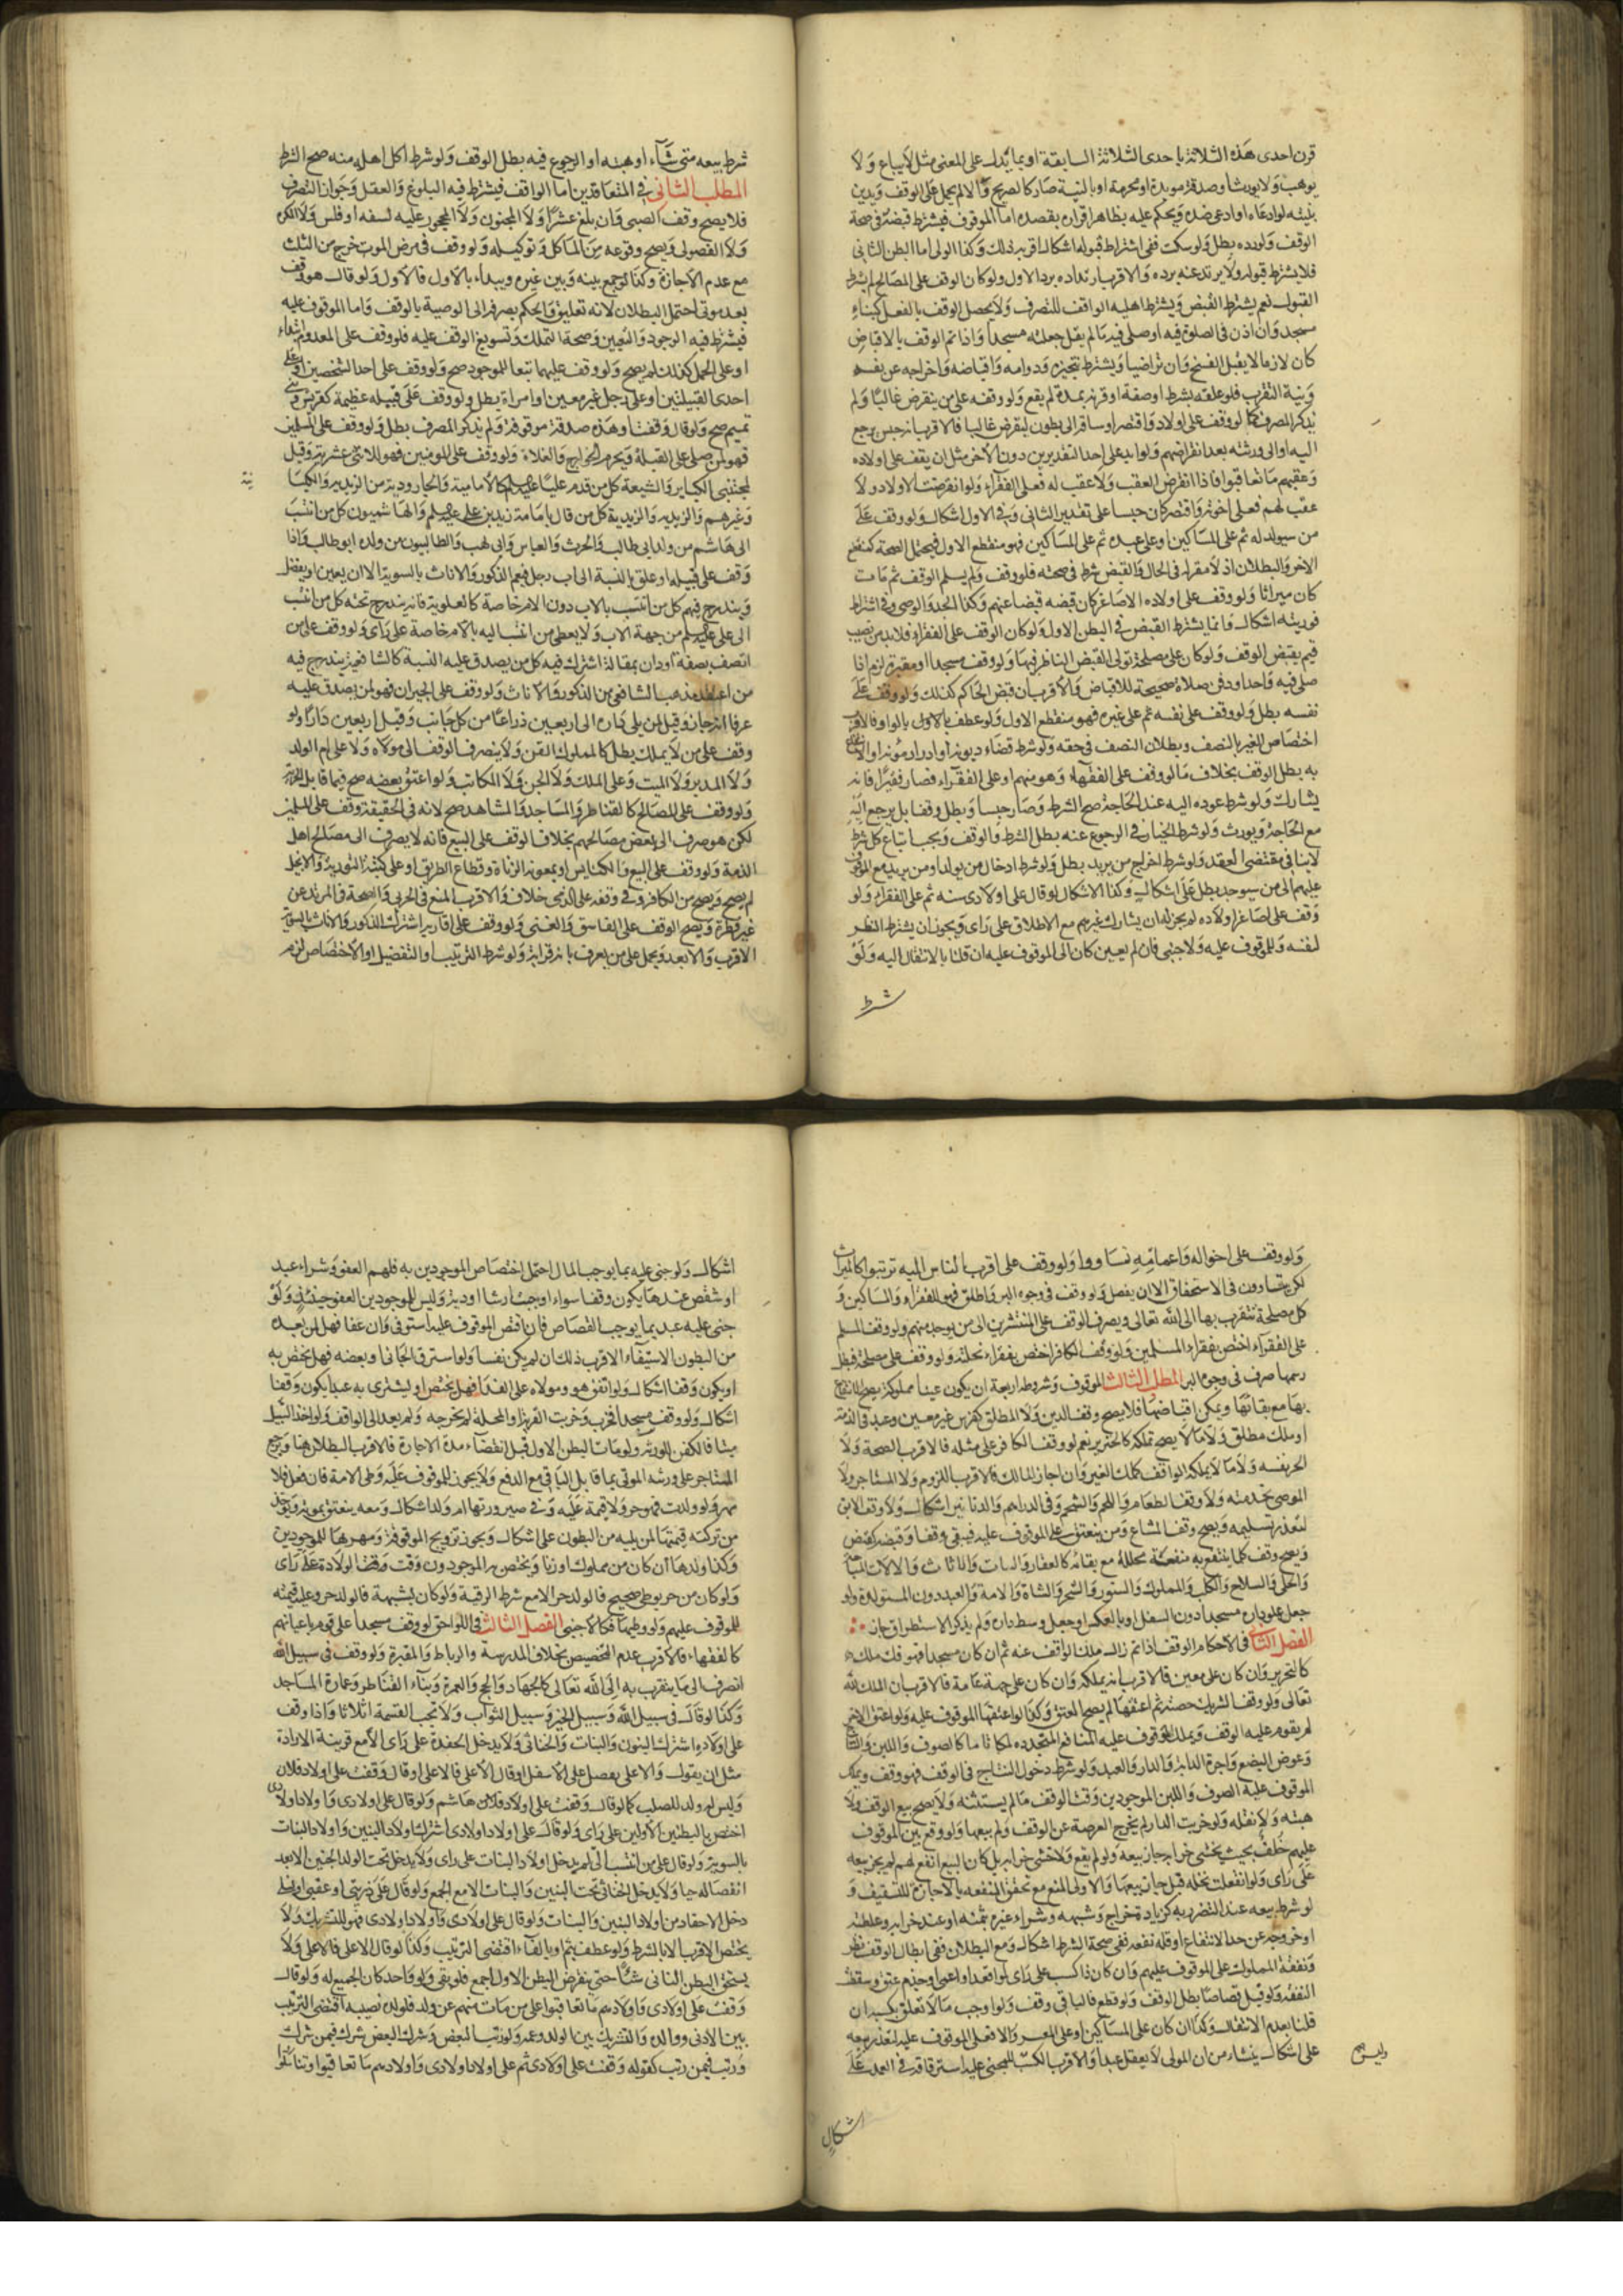 قرن احدى هذه الثلاثة باحدى الثلاثة السابقة او بما يدل على المعنى مثل لا يباع ولا
يوهب ولا يورث او صدقة موبدة او محرمة او بالنية صار كالصريح والا لم يحمل على الوقف ويدين
بنيته لو ادعاه او ادعى ضده ويحكم عليه بظاهر اقراره بقصده اما الموقوف فيشترط قبضه في صحة
الوقف ولو رده بطل ولو سكت ففي اشتراط قبوله اشكال اقربه ذلك وكذا الولى اما البطن الثانى
فلا يشترط قبوله ولا يرتد عنه برده والاقرب ارتداده برد الاول ولو كان الوقف على المصالح لم يشترط
القبول نعم يشترط القبض ويشترط اهلية الواقف للتصرف ولا يحصل الوقف بالفعل كبناء
مسجد وان اذن في الصلوة فيه او صلى فيه ما لم يقل جعلته مسجدا واذا تم الوقف بالاقباض
كان لازما لا يقبل الفسخ وان تراضيا ويشترط تنجيزه ودوامه واقباضه واخراجه عن نفسه
ونية التقرب فلو علقه بشرط او صفة او قرنه بمدة لم يقع ولو وقفه على من ينقرض غالبا ولم
يذكر المصرف كما لو وقف على اولاده واقتصر او ساق الى بطون تنقرض غالبا فالاقرب انه حبس يرجع
اليه او الى ورثته بعد انقراضهم ولو ابد على احد التقديرين دون الاخر مثل ان يقف على اولاده
وعقبهم ما تعاقبوا فاذا انقرض العقب ولا عقب له فعلى الفقراء ولو انقرضت الاولاد ولا
عقب لهم فعلى اخوته واقتصر كان حبسا على تقدير الثانى وفي الاول اشكال ولو وقف على
من سيولد له ثم على المساكين او على عبده ثم على المساكين فهو منقطع الاول فيحتمل الصحة كمنقطع
الاخر والبطلان اذ لا مقر له في الحال والقبض شرط في صحته فلو وقف ولم يسلم الوقف ثم مات
كان ميراثا ولو وقف على اولاده الاصاغر كان قبضه قبضا عنهم وكذا الجد والوصى وفي اشتراط
فوريته اشكال وانما يشترط القبض في البطن الاول ولو كان الوقف على الفقراء فلا بد من نصب
قيم يقبض الوقف ولو كان على مصلحة تولى القبض الناظر فيها ولو وقف مسجدا او مقبرة لزم اذا
صلى فيه واحد او دفن صلاة صحيحة للاقباض والاقرب ان قبض الحاكم كذلك ولو وقف على
نفسه بطل ولو وقف على نفسه ثم على غيره فهو منقطع الاول ولو عطف بالواو فالاقرب
اختصاص الغير بالنصف وبطلان النصف في حقه ولو شرط قضاء ديونه او ادرار مؤنه او الانتفاع
به بطل الوقف بخلاف ما لو وقف على الفقهاء وهو منهم او على الفقراء فصار فقيرا فانه
يشارك ولو شرط عوده اليه عند الحاجة صح الشرط وصار حبسا وبطل وقفا بل يرجع اليه
مع الحاجة ويورث ولو شرط الخيار في الرجوع عنه بطل الشرط والوقف ويجب اتباع كل شرط
لا ينافي مقتضى العقد ولو شرط اخراج من يريد بطل ولو شرط ادخال من يولد او من يريد مع الموقوف
عليهم الى من سيوجد بطل على اشكال وكذا الاشكال لو قال على اولادى سنة ثم على الفقراء ولو
وقف على اصاغر اولاده لم يجز له ان يشارك غيرهم مع الاطلاق على راى ويجوز ان يشترط النظر
لنفسه وللموقوف عليه ولاجنبى فان لم يعين كان الى الموقوف عليه ان قلنا بالانتقال اليه ولو
شرط
شرط بيعه متى شاء او هبته او الرجوع فيه بطل الوقف ولو شرط اكل اهله منه صح الشرط
المطلب الثانى في المتعاقدين اما الواقف فيشترط فيه البلوغ والعقل وجواز التصرف
فلا يصح وقف الصبى وان بلغ عشرا ولا المجنون ولا المحجور عليه لسفه او فلس ولا المكره
ولا الفضولى ويصح وقوعه من المالك وتوكيله ولو وقف في مرض الموت خرج من الثلث
مع عدم الاجازة وكذا لو جمع بينه وبين غيره ويبداء بالاول فالاول ولو قال هو وقف
بعد موتى احتمل البطلان لانه تعليق والحكم بصرفه الى الوصية بالوقف واما الموقوف عليه
فيشترط فيه الوجود والتعيين وصحة التملك وتسويغ الوقف عليه فلو وقف على المعدوم ابتداء
او على الحمل كذلك لم يصح ولو وقف عليهما تبعا للموجود صح ولو وقف على احد الشخصين او على
احدى القبيلتين او على رجل غير معين او امراة بطل ولو وقف على قبيلة عظيمة كقريش وبنى
تميم صح ولو قال وقفت او هذه صدقة موقوفة ولم يذكر المصرف بطل ولو وقف على المسلمين
فهو لمن صلى على القبلة ويحرم الخوارج والغلاة ولو وقف على المومنين فهو للاثنى عشرية وقيل
لمجتنبى الكباير والشيعة كل من قدم عليا عليه السلم كالامامية والجارودية من الزيدية والكيسا
نية
وغيرهم والزيدية كل من قال بامامة زيد بن على عليه السلم والهاشميون كل من انتسب
الى هاشم من ولد ابى طالب والحرث والعباس وابى لهب والطالبيون من ولده ابو طالب واذا
وقف على قبيلة او علق بالنسبة الى اب رجل فيعم الذكور والاناث بالسوية الا ان يعين او يفضل
ويندرج فيهم كل من انتسب بالاب دون الام خاصة كالعلوية فانه يندرج تحته كل من انتسب
الى على عليه السلم من جهة الاب ولا يعطى من انتسب اليه بالام خاصة على راى ولو وقف على من
اتصف بصفة او دان بمقالة اشترك فيه كل من يصدق عليه النسبة كالشافعية يندرج فيه
من اعتقد مذهب الشافعى من الذكور والاناث ولو وقف على الجيران فهو لمن يصدق عليه
عرفا انه جار وقيل لمن يلى داره الى اربعين ذراعا من كل جانب وقيل اربعين دارا ولو
وقف على من لا يملك بطل كالمملوك القن ولا ينصرف الوقف الى مولاه ولا على ام الولد
ولا المدبر ولا الميت وعلى الملك ولا الجن ولا المكاتب ولو اعتق بعضه صح فيما قابل الحرية
ولو وقف على المصالح كالقناطر والمساجد والمشاهد صح لانه في الحقيقة وقف على المسلمين
لكن هو صرف الى بعض مصالحهم بخلاف الوقف على البيع فانه لا يصرف الى مصالح اهل
الذمة ولو وقف على البيع والكنايس او بمعونة الزناة وقطاع الطريق او على كتبة التورية والانجيل
لم يصح ويصح من الكافر وفي وقفه على الذمى خلاف والاقرب المنع في الحربى والصحة في المرتد عن
غير فطرة ويصح الوقف على الفاسق والغنى ولو وقف على اقاربه اشترك الذكور والاناث بالسوية
الاقرب والابعد ويحمل على من يعرف بانه قرابة ولو شرط الترتيب او التفضيل او الاختصاص لزم
ولو وقف على اخواله واعمامه تساووا ولو وقف على اقرب الناس اليه ترتبوا كالميراث
لكن يتساوون في الاستحقاق الا ان يفضل ولو وقف في وجوه البر واطلق فهو للفقراء والمساكين و
كل مصلحة يتقرب بها الى الله تعالى ويصرف الوقف على المنتشرين الى من يوجد منهم ولو وقف المسلم
على الفقراء اختص بفقراء المسلمين ولو وقف الكافر اختص بفقراء نحلته ولو وقف على مصلحة فبطل
رسمها صرف في وجوه البر المطلب الثالث الموقوف وشروطه اربعة ان يكون عينا مملوكة يصح الانتفاع
بها مع بقائها ويمكن اقباضها فلا يصح وقف الدين ولا المطلق كفرس غير معين وعبد في الذمة
او ملك مطلق ولا ما لا يصح تملكه كالخنزير نعم لو وقف الكافر على مثله فالاقرب الصحة ولا
الحر نفسه ولا ما لا يملكه الواقف كملك الغير وان اجاز المالك فالاقرب اللزوم ولا المستاجر ولا
الموصى بخدمته ولا وقف الطعام واللحم والشمع وفي الدراهم والدنانير اشكال ولا وقف الابق
لتعذر تسليمه ويصح وقف المشاع ومن ينعتق على الموقوف عليه فيبقى وقفا وقبضه كقبض
ويصح وقف كلما ينتفع به منفعة محللة مع بقائه كالعقار والثياب والاثاث والالات المباحة
والحلى والسلاح والكلب والمملوك والستور والشجر والشاة والامة والعبد دون المستولدة ولو
جعل علو داره مسجدا دون السفل او بالعكس او جعل وسط داره ولم يذكر الاستطراق جاز
الفصل الثانى في الاحكام الوقف اذا تم زال ملك الواقف عنه ثم ان كان مسجدا فهو فك ملك
كالتحرير وان كان على معين فالاقرب انه يملكه وان كان على جهة عامة فالاقرب ان الملك لله
تعالى ولو وقف الشريك حصته ثم اعتقها لم يصح العتق وكذا لو اعتقها الموقوف عليه ولو اعتق الاخر
لم يقوم عليه الوقف ويملك الموقوف عليه المنافع المتجددة ملكا تاما كالصوف واللبن والنتاج
وعوض البضع واجرة الدابة والدار والعبد ولو شرط دخول النتاج في الوقف فهو وقف ويملك
الموقوف عليه الصوف واللبن الموجودين وقت الوقف ما لم يستثنه ولا يصح بيع الوقف ولا
هبته ولا نقله ولو خربت الدار لم يخرج العرصة عن الوقف ولم بيعها ولو وقع بين الموقوف
عليهم خلف بحيث يخشى خرابه جاز بيعه ولو لم يقع ولا خشى خرابه بل كان البيع انفع لهم لم يجز بيعه
على راى ولو انقلعت نخلة قبل جاز بيعها والاولى المنع مع تحقق المنفعة بالاجارة للتسقيف و
لو شرط بيعه عند التضرر به كزيادة خراج وشبهه وشراء غيره بثمنه او عند خرابه وعطلته
او خروجه عن حد الانتفاع او قلة نفعه ففي صحة الشرط اشكال ومع البطلان ففي ابطال الوقف نظر
ونفقة المملوك على الموقوف عليهم وان كان ذا كسب على راى لو اقعد او اعمى او جذم عتق وسقطت
النفقة ولو قتل قصاصا بطل الوقف ولو قطع فالباقى وقف ولو اوجب مالا تعلق بكسبه ان
قلنا بعدم الانتقال وكذا ان كان على المساكين او على المعسر والا فعلى الموقوف عليه لتعذر بيعه
على اشكال ينشاء من ان المولى لا يعقل عبدا والاقرب الكسب للمجنى عليه استرقاقه في العمد على
وليس صح
اشكال
اشكال ولو جنى عليه بما يوجب المال احتمل اختصاص الموجودين به فلهم العفو وشراء عبد
او شقص عبد هنا يكون وقفا سواء اوجبت ارشا او دية وليس للموجودين العفو حينئذ ولو
جنى عليه عبد بما يوجب القصاص فان اقتص الموقوف عليه استوفي وان عفا فهل لمن بعده
من البطون الاستيفاء الاقرب ذلك ان لم يكن نفسا ولو استرق الجانى او بعضه فهل يختص به
او يكون وقفا اشكال ولو اتفق هو ومولاه على الفداء فهل يختص او يشترى به عبدا يكون وقفا
اشكال ولو وقف مسجدا فخرب وخربت القرية او المحلة لم يخرجه ولم يعد الى الواقف ولو اخذ السيل
ميتا فالكفن للورثة ولو مات البطن الاول قبل انقضاء مدة الاجارة فالاقرب البطلان هنا ويرجع
المستاجر على ورثة الموتى بما قابل الباقى مع الدفع ولا يجوز للموقوف عليه وطى الامة فان فعل فلا
مهر ولو ولدت فهو حر ولا قيمة عليه وفي صيرورتها ام ولد اشكال ومعه ينعتق بموته ويوخذ
من تركته قيمتها لمن يليه من البطون على اشكال ويجوز تزويج الموقوفة ومهرها للموجودين
وكذا ولدها ان كان من مملوك او زنا ويختص به الموجودون وقت الولادة على راى
ولو كان من حر بوطى صحيح فالولد حر الا مع شرط الرقية ولو كان بشبهة فالولد حر وعليه قيمته
للموقوف عليهم ولو وطيها فكالاجنبى الفصل الثالث في اللواحق لو وقف مسجدا على قوم باعيانهم
كالفقهاء فالاقرب عدم التخصيص بخلاف المدرسة والرباط والمقبرة ولو وقف في سبيل الله
انصرف الى ما يتقرب به الى الله تعالى كالجهاد والحج والعمرة وبناء القناطر وعمارة المساجد
وكذا لو قال في سبيل الله وسبيل الخير وسبيل الثواب ولا تجب القسمة اثلاثا واذا وقف
على اولاده اشترك البنون والبنات والخناثى ولا يدخل الحفدة على راى الا مع قرينة الارادة
مثل ان يقول والاعلى يفضل على الاسفل او قال الاعلى فالاعلى او قال وقفت على اولاد فلان
وليس له ولد للصلب كما لو قال وقفت على اولاد هاشم ولو قال على اولادى واولاد اولادى
اختص بالبطنين الاولين على راى ولو قال على اولاد اولادى اشترك اولاد البنين واولاد البنات
بالسوية ولو قال على من انتسب الى لم يدخل اولاد البنات على راى ولا يدخل تحت الولد الجنين الا بعد
انفصاله حيا ولا يدخل الخناثى تحت البنين والبنات الا مع الجمع ولو قال على ذريتى او عقبى او نسلى
دخل الاحفاد من اولاد البنين والبنات ولو قال على اولادى واولاد اولادى فهو للتشريك ولا
يختص الاقرب الا بالشرط ولو عطف بثم او بالفاء اقتضى الترتيب وكذا لو قال الاعلى فالاعلى ولا
يستحق البطن الثانى شئا حتى ينقرض البطن الاول اجمع فلو بقى ولو واحد كان الجميع له ولو قال
وقفت على اولادى واولادهم ما تعاقبوا على من مات منهم عن ولد فلولده نصيبه اقتضى الترتيب
بين الادنى ووالده والتشريك بين الولد وعمه ولو رتب البعض وشرك البعض شرك فيمن شرك
ورتب فيمن رتب كقوله وقفت على اولادى ثم على اولاد اولادى واولادهم ما تعاقبوا وتناسلوا